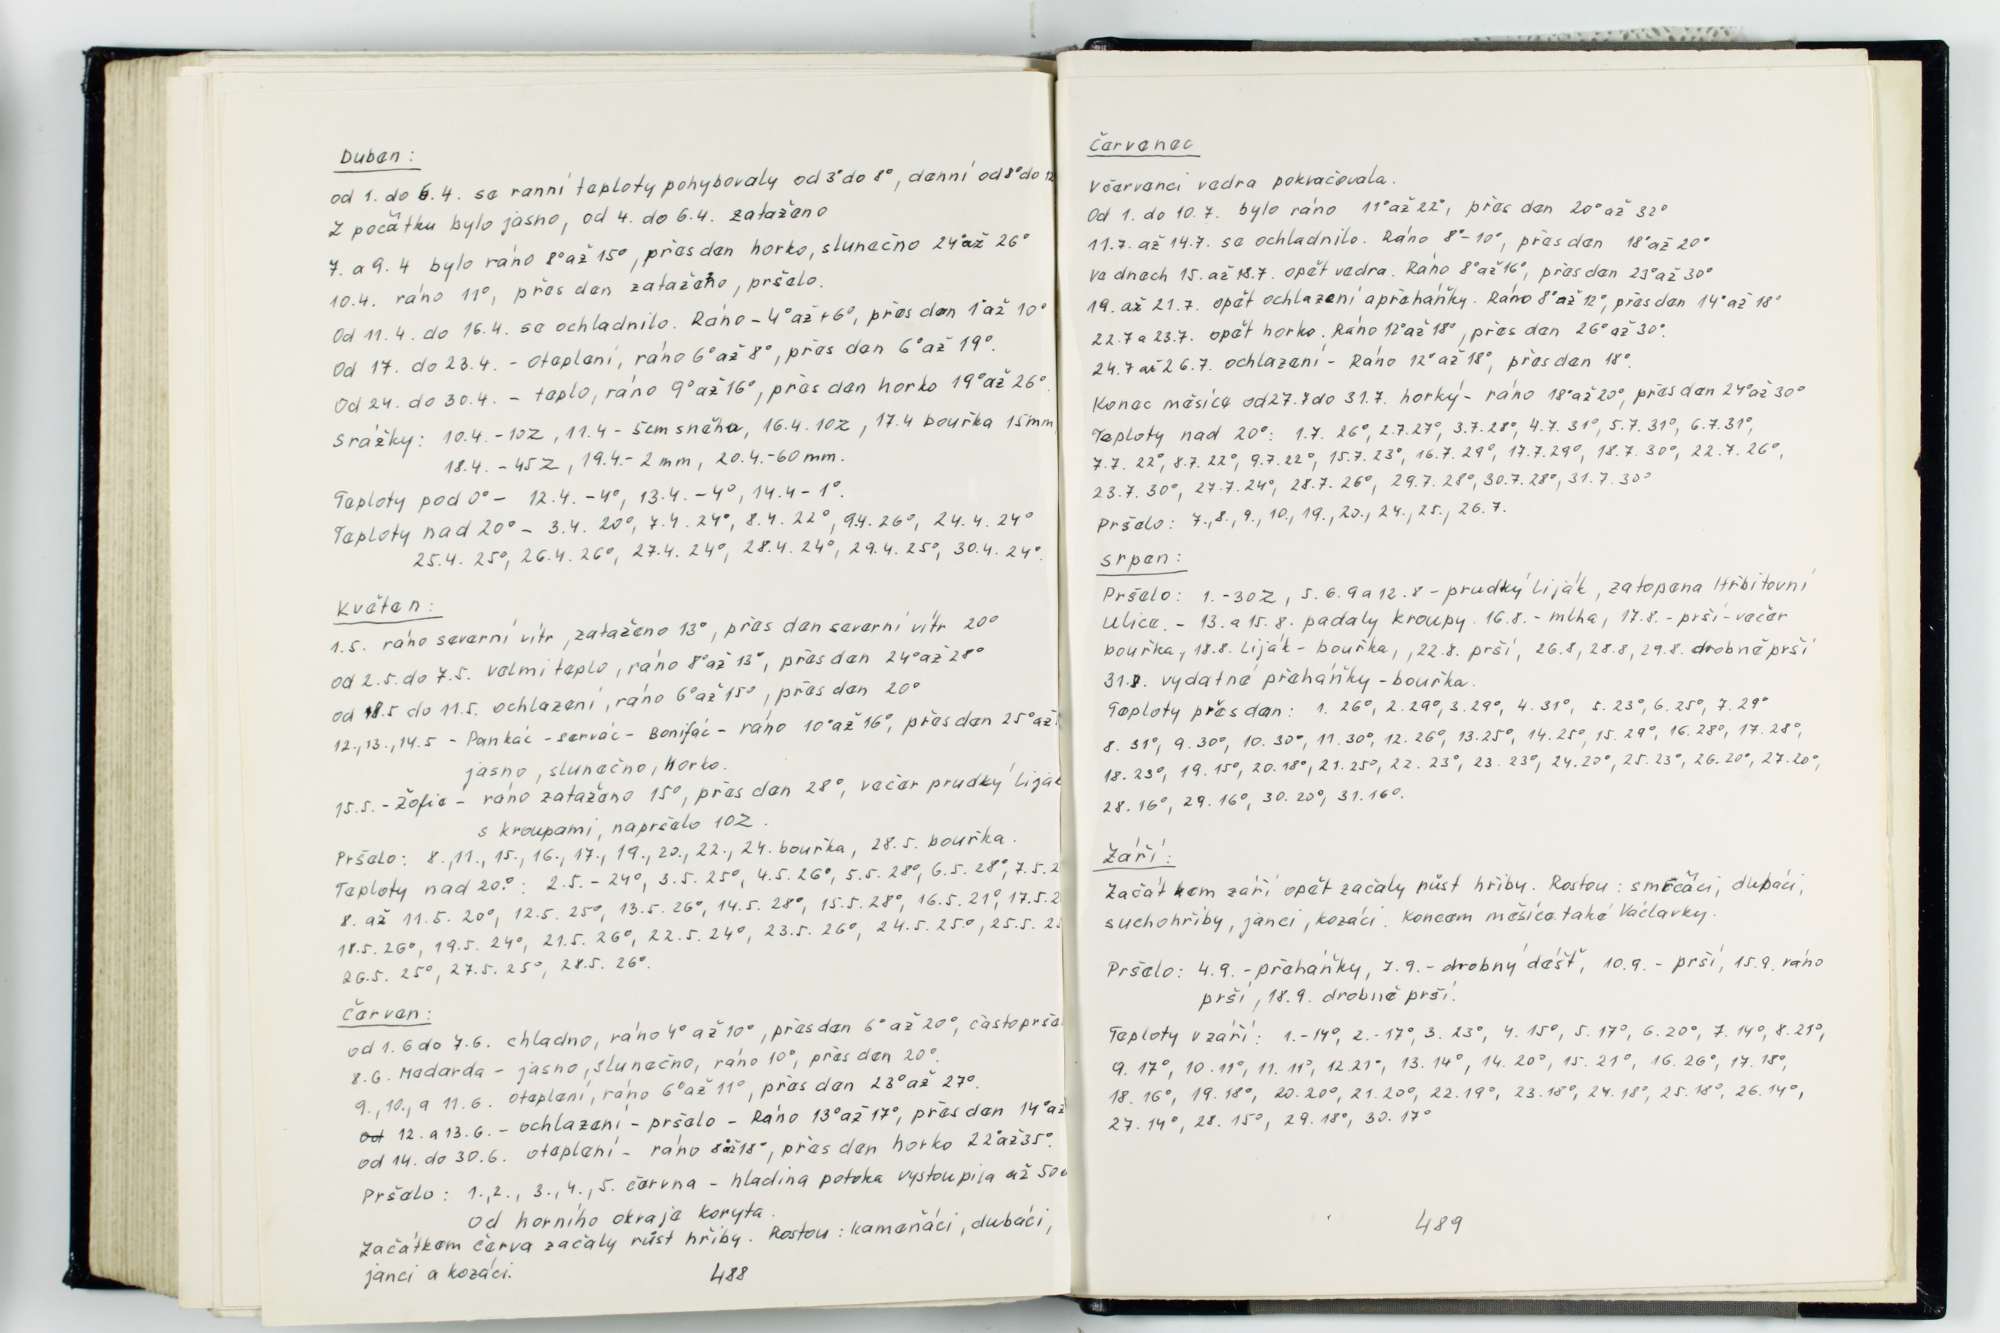 Duben:
od 1. do 6.4. se ranní teploty pohybovaly od 3° do 8°, denní od 8° do 12
Z počátku bylo jasno, od 4. do 6.4. zataženo
7. a 9. 4 bylo ráno 8° až 15°, přes den horko, slunečno 24° až 26°
10.4. ráno 11°, přes den zataženo, pršelo.
Od 11.4. do 16.4. se ochladnilo. Ráno -4° až +6°, přes den 1° až 10°
Od 17. do 23.4. - oteplení, ráno 6° až 8°, přes den 6° až 19°.
Od 24. do 30.4. - teplo, ráno 9° až 16°, přes den horko 19° až 26°.
Srážky: 10.4. - 10Z, 11.4 - 5cm sněhu, 16.4. 10Z, 17.4 bouřka 15mm,
18.4. - 45Z, 19.4. - 2 mm, 20.4. - 60 mm.
Teploty pod 0° - 12.4. -4°, 13.4. -4°, 14.4 - 1°.
Teploty nad 20° - 3.4. 20°, 7.4. 24°, 8.4. 22°, 9.4. 26°, 24.4. 24°
25.4. 25°, 26.4. 26°, 27.4. 24°, 28.4. 24°, 29.4. 25°, 30.4. 24°.
Květen:
1.5. ráno severní vítr, zataženo 13°, přes den severní vítr 20°
od 2.5. do 7.5. velmi teplo, ráno 8° až 13°, přes den 24° až 28°
od 8.5 do 11.5. ochlazení, ráno 6° až 15°, přes den 20°
12., 13., 14.5 - Pankác - servác - Bonifác - ráno 10° až 16°, přes den 25° až
jasno, slunečno, horko.
15.5. - Žofie - ráno zataženo 15°, přes den 28°, večer prudký liják
s kroupami, napršelo 10Z.
Pršelo: 8., 11., 15., 16., 17., 19., 20., 22., 24. bouřka, 28.5. bouřka.
Teploty nad 20°: 2.5. - 24°, 3.5. 25°, 4.5. 26°, 5.5. 28°, 6.5. 28°, 7.5. 2
8. až 11.5. 20°, 12.5. 25°, 13.5. 26°, 14.5. 28°, 15.5. 28°, 16.5. 21°, 17.5. 2
18.5. 26°, 19.5. 24°, 21.5. 26°, 22.5. 24°, 23.5. 26°, 24.5. 25°, 25.5. 25
26.5. 25°, 27.5. 25°, 28.5. 26°.
Červen:
od 1.6 do 7.6. chladno, ráno 4° až 10°, přes den 6° až 20°, často prše
8.6. Medarda - jasno, slunečno, ráno 10°, přes den 20°.
9., 10., a 11.6. oteplení, ráno 6° až 11°, přes den 23° až 27°.
Od 12. a 13.6. - ochlazení - pršelo - Ráno 13° až 17°, přes den 14° až
od 14. do 30.6. oteplení - ráno 8 až 18°, přes den horko 22° až 35°.
Pršelo: 1., 2., 3., 4., 5. června - hladina potoka vystoupila až 50c
od horního okraje koryta.
Začátkem červa začaly růst hřiby. Rostou: kameňáci, dubáci,
janci a kozáci.
488
Červenec
V červenci vedra pokračovala.
Od 1. do 10.7. bylo ráno 11° až 22°, přes den 20° až 32°
11.7. až 14.7. se ochladnilo. Ráno 8° - 10°, přes den 18° až 20°
Ve dnech 15. až 18.7. opět vedra. Ráno 8° až 16°, přes den 23° až 30°
19. až 21.7. opět ochlazení a přeháňky. Ráno 8° až 12°, přes den 14° až 18°
22.7 a 23.7. opět horko. Ráno 12° až 18°, přes den 26° až 30°.
24.7 až 26.7. ochlazení - Ráno 12° až 18°, přes den 18°.
Konec měsíce od 27.7 do 31.7. horký - ráno 18° až 20°, přes den 24° až 30°
Teploty nad 20°: 1.7. 26°, 2.7. 27°, 3.7. 28°, 4.7. 31°, 5.7. 31°, 6.7. 31°,
7.7. 22°, 8.7. 22°, 9.7. 22°, 15.7. 23°, 16.7. 29°, 17.7. 29°, 18.7. 30°, 22.7. 26°,
23.7. 30°, 27.7. 24°, 28.7. 26°, 29.7. 28°, 30.7. 28°, 31.7. 30°
Pršelo: 7., 8., 9., 10., 19., 20., 24., 25., 26.7.
Srpen:
Pršelo: 1. - 30Z, 5. 6. 9 a 12.8 - prudký liják, zatopena Hřbitovní
ulice. - 13. a 15. 8. padaly kroupy. 16.8. - mlha, 17.8. - prší - večer
bouřka, 18.8. liják - bouřka, 22.8. prší, 26.8, 28.8, 29.8. drobně prší
31.8. vydatné přeháňky - bouřka.
Teploty přes den: 1. 26°, 2. 29°, 3. 29°, 4. 31°, 5. 23°, 6. 25°, 7. 29°
8. 31°, 9. 30°, 10. 30°, 11. 30°, 12. 26°, 13. 25°, 14. 25°, 15. 29°, 16. 28°, 17. 28°,
18. 23°, 19. 15°, 20. 18°, 21. 25°, 22. 23°, 23. 23°, 24. 20°, 25. 23°, 26. 20°, 27. 20°,
28. 16°, 29. 16°, 30. 20°, 31. 16°.
Září:
Začátkem září opět začaly růst hřiby. Rostou: smrčáci, dubáci,
suchohřiby, janci, kozáci. Koncem měsíce také Václavky.
Pršelo: 4.9. - přeháňky, 7.9. - drobný déšť, 10.9. - prší, 15.9. ráno
prší, 18.9. drobně prší.
Teploty v září: 1. - 14°, 2. - 17°, 3. 23°, 4. 15°, 5. 17°, 6. 20°, 7. 14°, 8. 21°,
9. 17°, 10. 11°, 11. 11°, 12. 21°, 13. 14°, 14. 20°, 15. 21°, 16. 26°, 17. 18°,
18. 16°, 19. 18°, 20. 20°, 21. 20°, 22. 19°, 23. 18°, 24. 18°, 25. 18°, 26. 14°,
27. 14°, 28. 15°, 29. 18°, 30. 17°
489